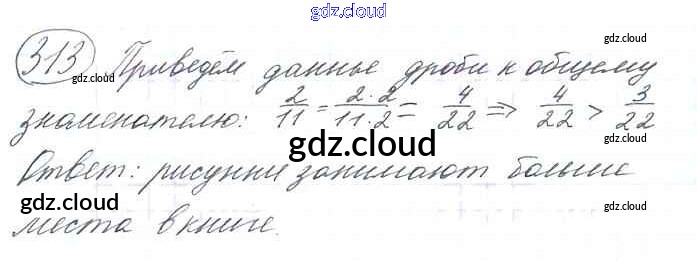 gdz.cloud
gdz.cloud
gdz.cloud
313 Приведём данные дроби к общему
знаменателю: 2/11 = 2·2/11·2 = 4/22 => 4/22 > 3/22
gdz.cloud
gdz.cloud
Ответ: рисунки занимают больше
gdz.cloud
gdz.cloud
места в книге.